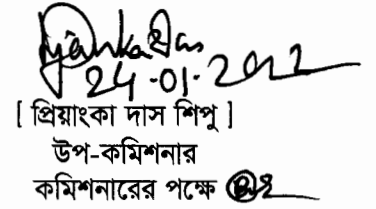 24-01-2022
[ প্রিয়াংকা দাস শিপু ]
উপ-কমিশনার
কমিশনারের পক্ষে